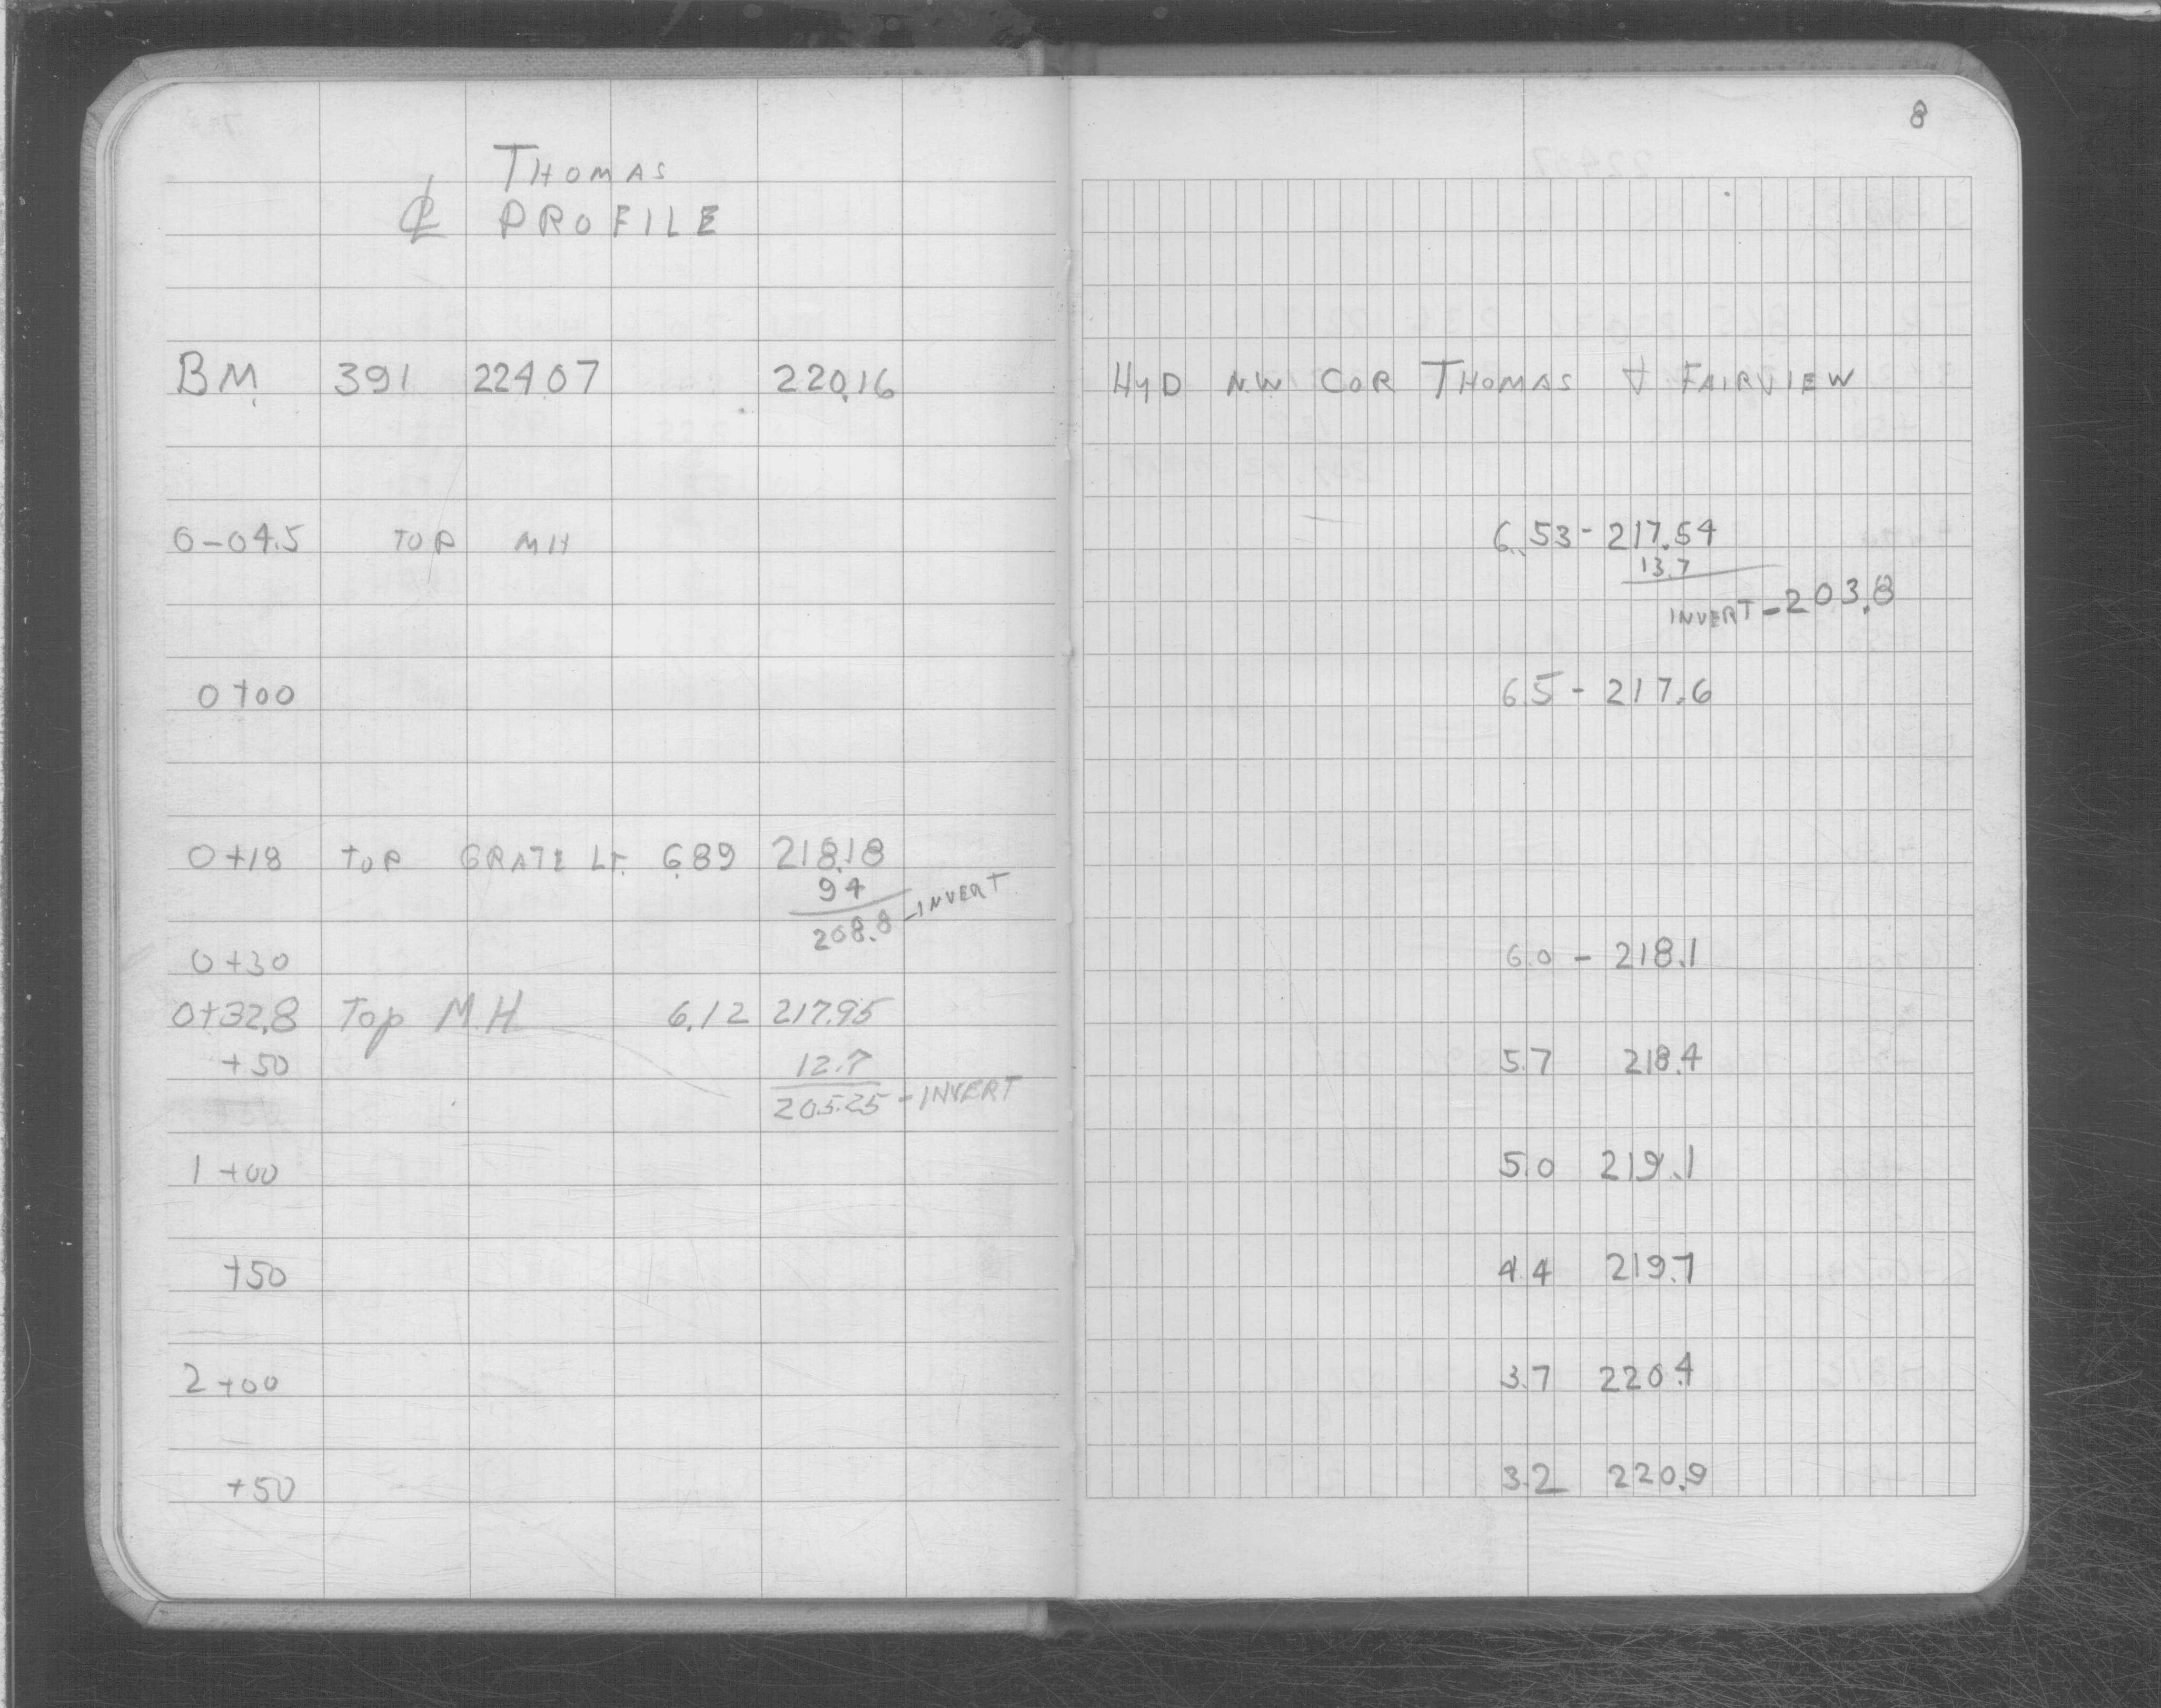 8
THOMAS
℄ PROFILE
BM 391 224.07 220.16 HYD NW COR THOMAS & FAIRVIEW
0-04.5 TOP MH 6.53 - 217.54
13.7
INVERT - 203.8
0+00 6.5 - 217.6
0+18 TOP GRATE LT. 6.89 218.18
9.4
208.8 - INVERT
0+30 6.0 - 218.1
0+32.8 Top MH 6.12 217.95
+50 12.7 5.7 218.4
205.25 - INVERT
1+00 5.0 219.1
+50 4.4 219.7
2+00 3.7 220.4
+50 3.2 220.9